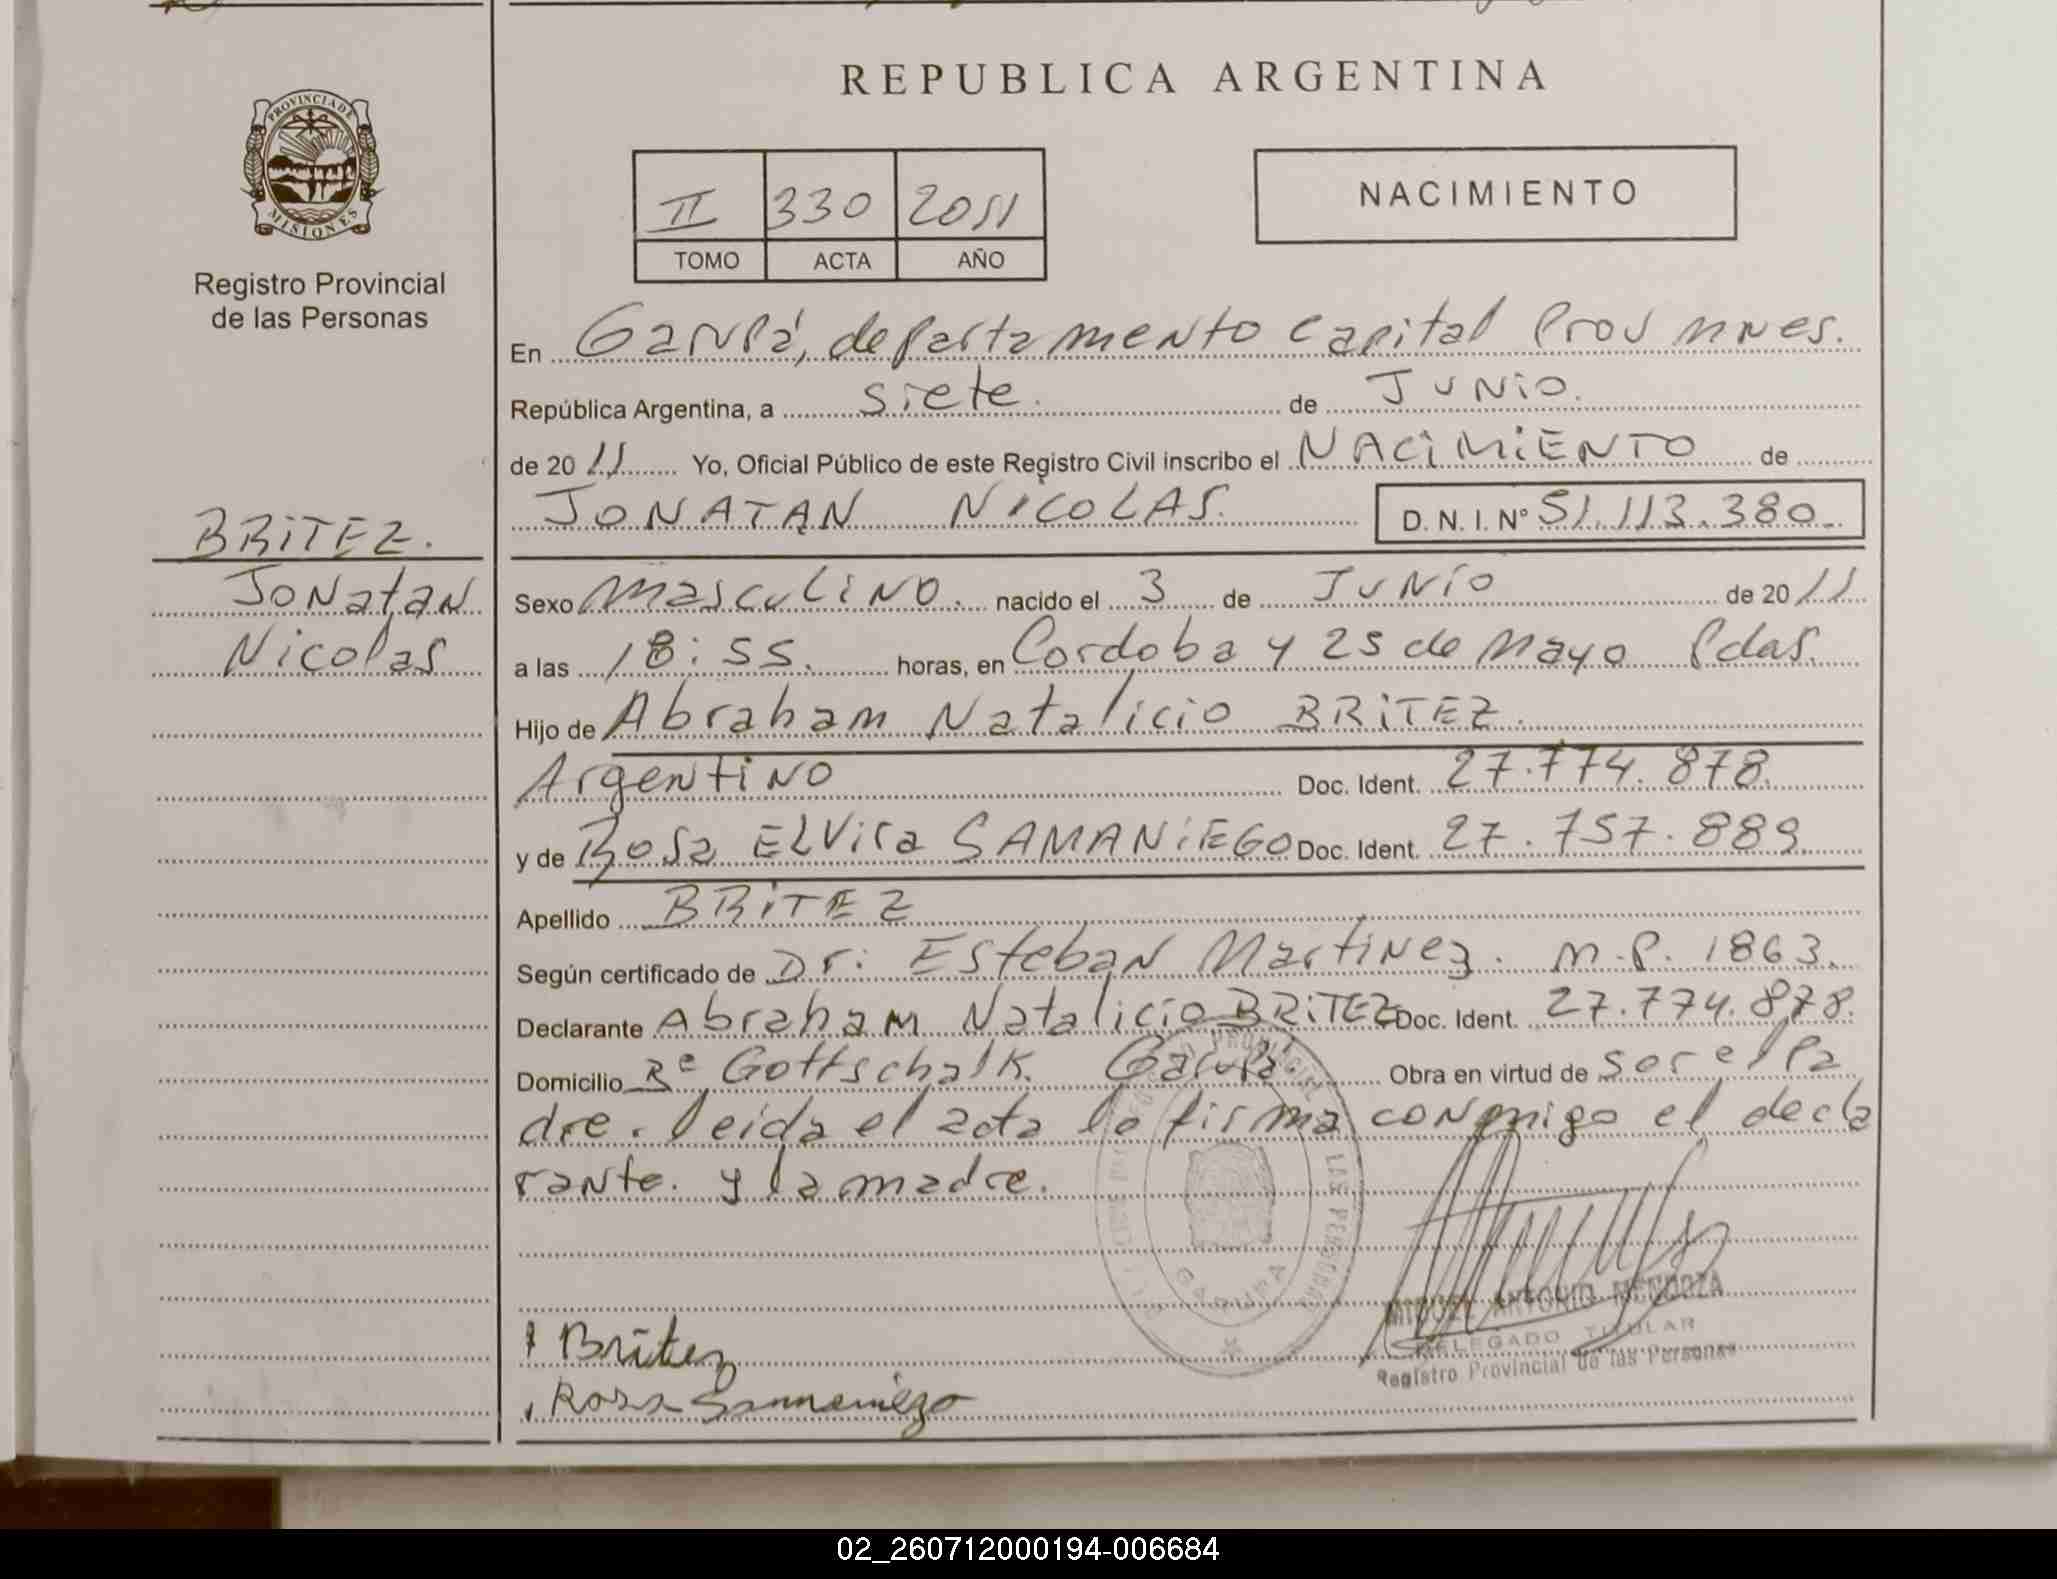 REPUBLICA ARGENTINA
PROVINCIA DE
MISIONES
Registro Provincial
de las Personas
II 330 2011
TOMO ACTA AÑO
NACIMIENTO
En Garupá, departamento Capital Prov Mnes.
República Argentina, a siete. de Junio.
de 2011 Yo, Oficial Público de este Registro Civil inscribo el NACIMIENTO de
JONATAN NICOLAS. D. N. I. Nº 51.113.380.
BRITEZ.
Jonatan
Nicolas
Sexo masculino. nacido el 3 de Junio de 2011
a las 18:55. horas, en Cordoba y 25 de Mayo Pdas.
Hijo de Abraham Natalicio BRITEZ.
Argentino Doc. Ident. 27.774.878.
y de Rosa Elvira SAMANIEGO Doc. Ident. 27.757.889
Apellido BRITEZ
Según certificado de Dr. Esteban Martinez. M.P. 1863.
Declarante Abraham Natalicio BRITEZ Doc. Ident. 27.774.878.
Domicilio Bº Gottschalk. Garupá Obra en virtud de ser el Pa
dre. leida el acta la firma conmigo el decla
rante. y la madre.
GARUPA
MIGUEL ANTONIO MENDOZA
DELEGADO TITULAR
Registro Provincial de las Personas
Britez
Rosa Samaniego
02_260712000194-006684